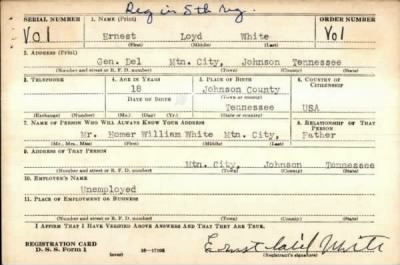 Reg in 5th Reg.
SERIAL NUMBER 1. NAME (Print) ORDER NUMBER
V01 Ernest Loyd White V01
(First) (Middle) (Last)
2. ADDRESS (Print)
Gen. Del Mtn. City, Johnson Tennessee
(Number and street or R. F. D. number) (Town) (County) (State)
3. TELEPHONE 4. AGE IN YEARS 5. PLACE OF BIRTH 6. COUNTRY OF CITIZENSHIP
18 Johnson County
DATE OF BIRTH (Town or county)
Tennessee USA
(Exchange) (Number) (Mo.) (Day) (Yr.) (State or country)
7. NAME OF PERSON WHO WILL ALWAYS KNOW YOUR ADDRESS 8. RELATIONSHIP OF THAT PERSON
Mr. Homer William White Mtn. City, Father
(Mr., Mrs., Miss) (First) (Middle) (Last)
9. ADDRESS OF THAT PERSON
Mtn. City, Johnson Tennessee
(Number and street or R. F. D. number) (Town) (County) (State)
10. EMPLOYER'S NAME
Unemployed
11. PLACE OF EMPLOYMENT OR BUSINESS
(Number and street or R. F. D. number) (Town) (County) (State)
I AFFIRM THAT I HAVE VERIFIED ABOVE ANSWERS AND THAT THEY ARE TRUE.
REGISTRATION CARD
D. S. S. Form 1 (over) Ernest White
(Registrant's signature)